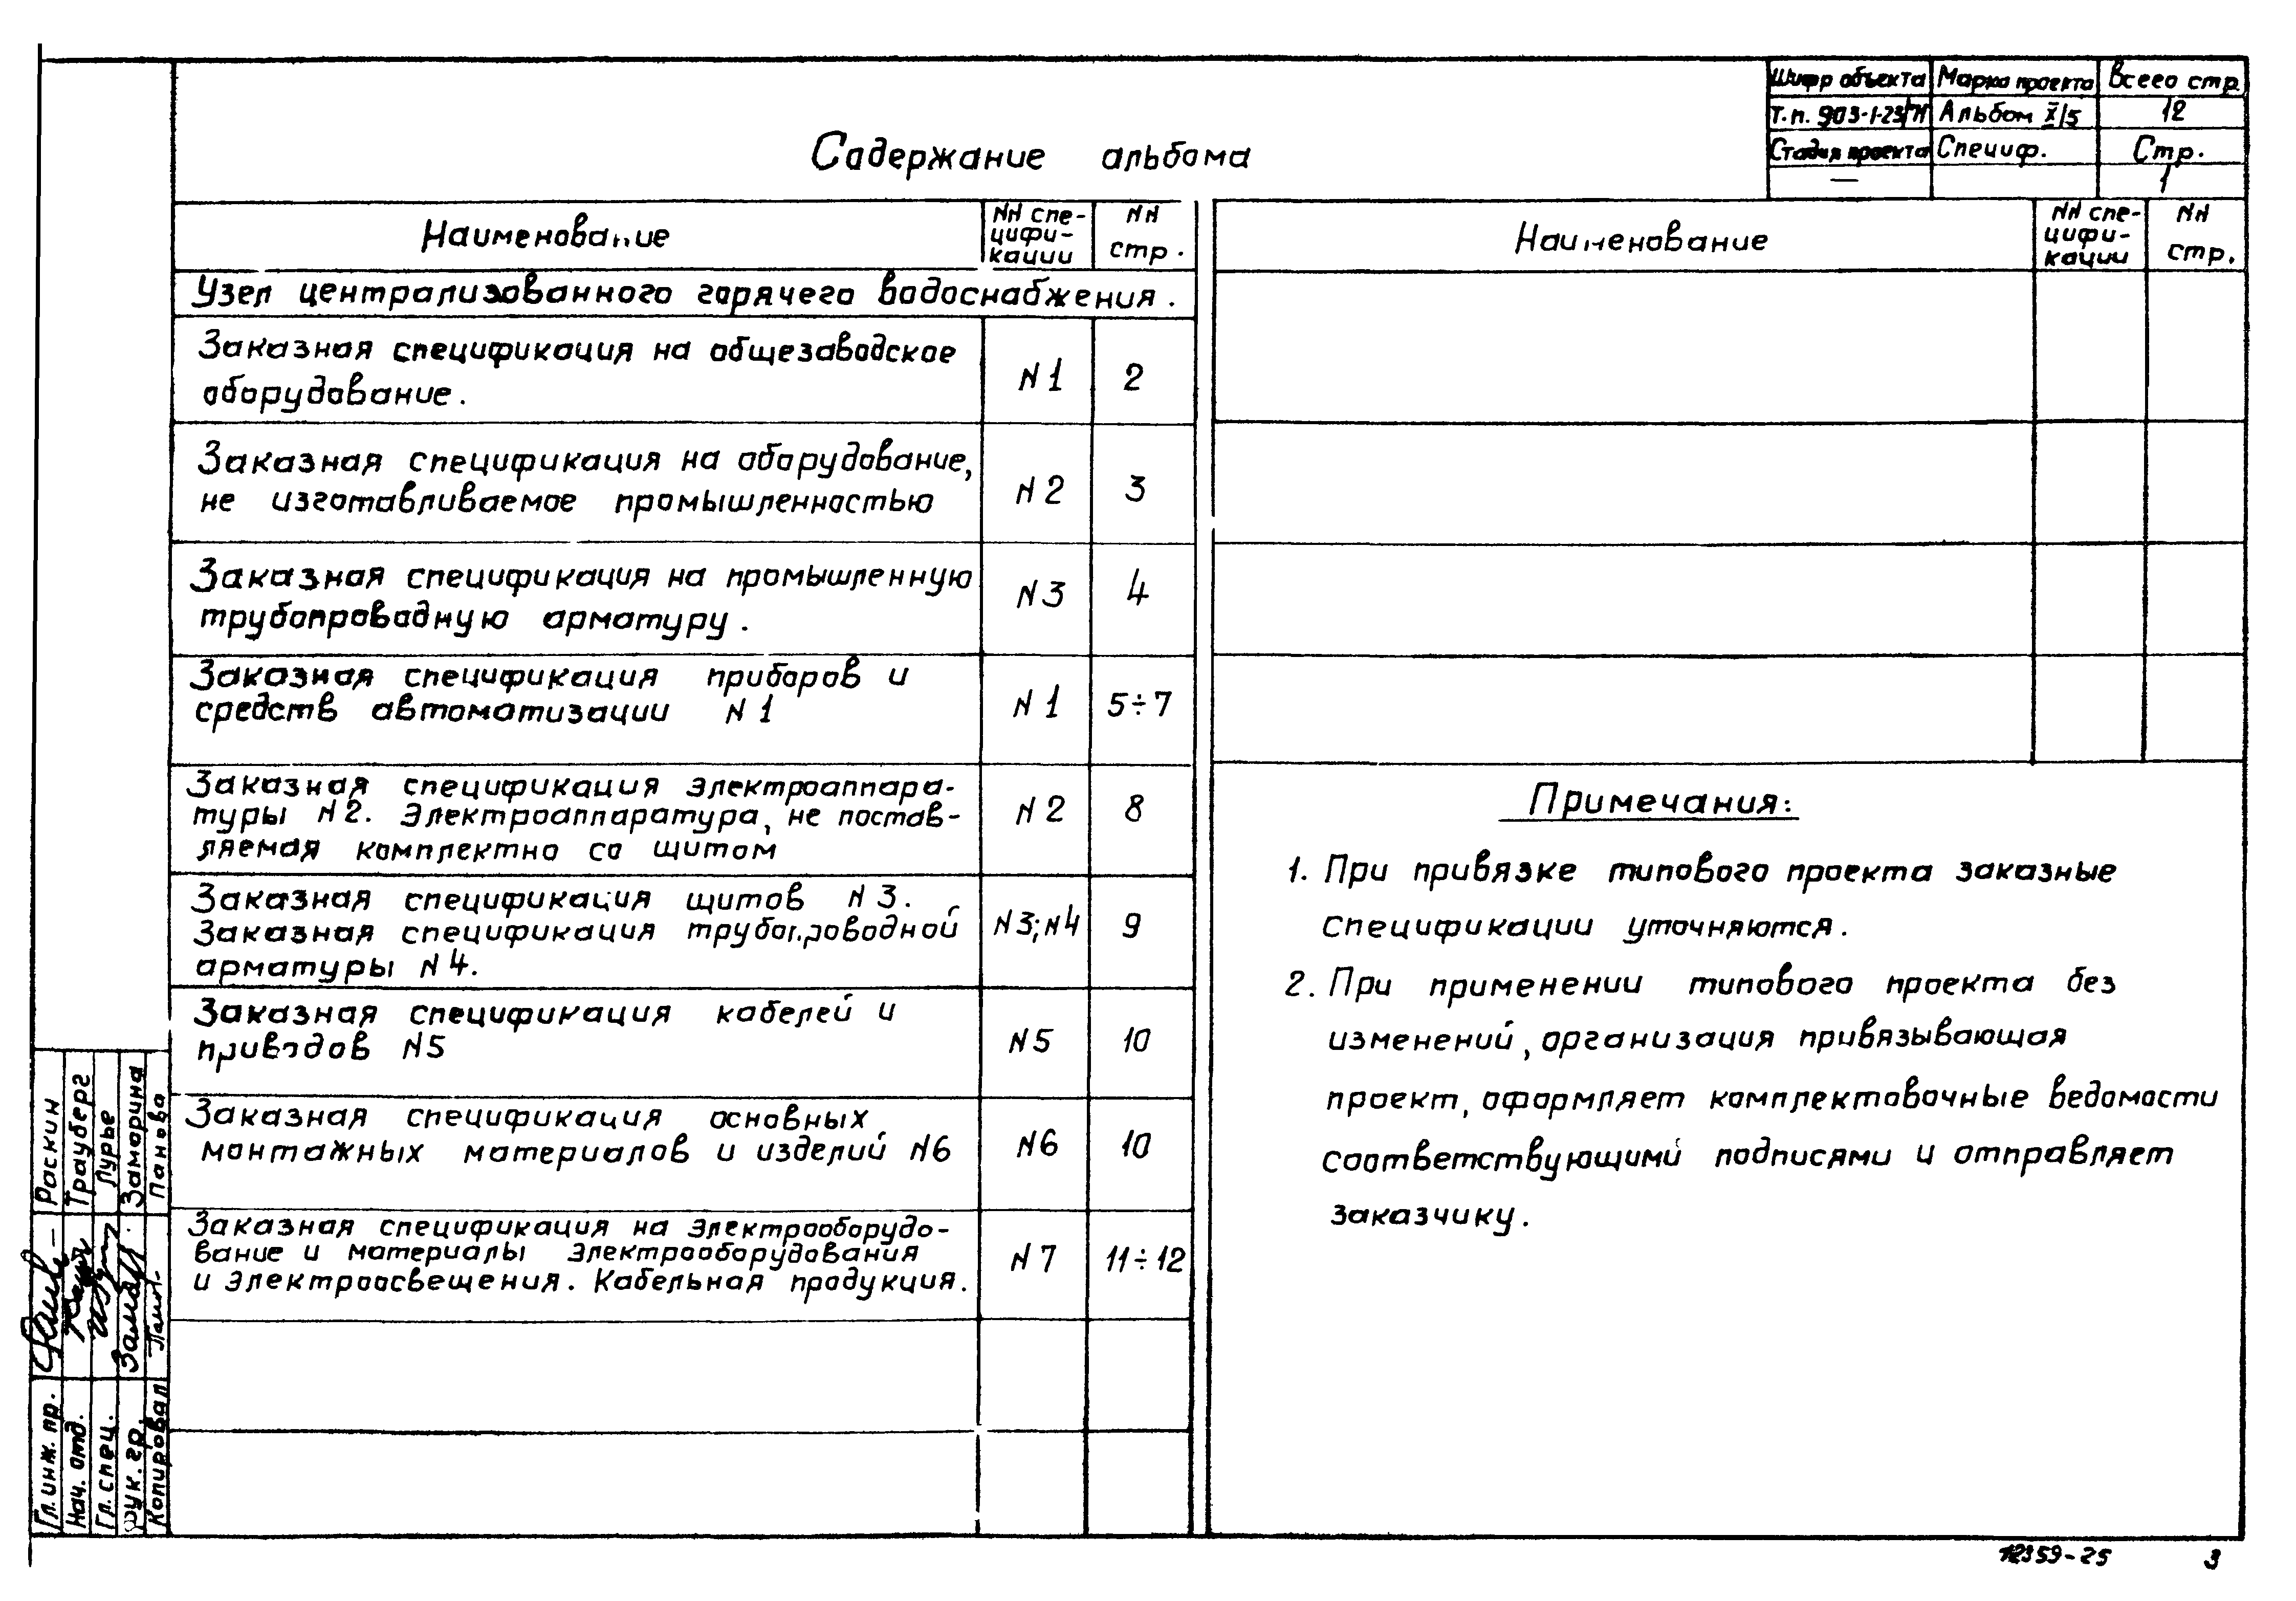 Шифр объекта Марка проекта Всего стр
Т.п. 903-1-23/71 Альбом X/5 12
Стадия проекта Специф. Стр.
— 1
Содержание альбома
Наименование
NN спе-
цифи-
кации
NN
стр.
Наименование
NN спе-
цифи-
кации
NN
стр.
Узел централизованного горячего водоснабжения.
Заказная спецификация на общезаводское
оборудование.
N1 2
Заказная спецификация на оборудование,
не изготавливаемое промышленностью
N2 3
Заказная спецификация на промышленную
трубопроводную арматуру.
N3 4
Заказная спецификация приборов и
средств автоматизации N1
N1 5÷7
Заказная спецификация электроаппара-
туры N2. Электроаппаратура, не постав-
ляемая комплектно со щитом
N2 8
Заказная спецификация щитов N3.
Заказная спецификация трубопроводной
арматуры N4.
N3; N4 9
Заказная спецификация кабелей и
приводов N5
N5 10
Заказная спецификация основных
монтажных материалов и изделий N6
N6 10
Заказная спецификация на электрооборудо-
вание и материалы электрооборудования
и электроосвещения. Кабельная продукция.
N7 11÷12
Примечания:
1. При привязке типового проекта заказные
спецификации уточняются.
2. При применении типового проекта без
изменений, организация привязывающая
проект, оформляет комплектовочные ведомости
соответствующими подписями и отправляет
заказчику.
Гл. инж. пр. Раскин
Нач. отд. Трауберг
Гл. спец. Лурье
Рук. гр. Заморина
Копировал Панова
12359-25 3